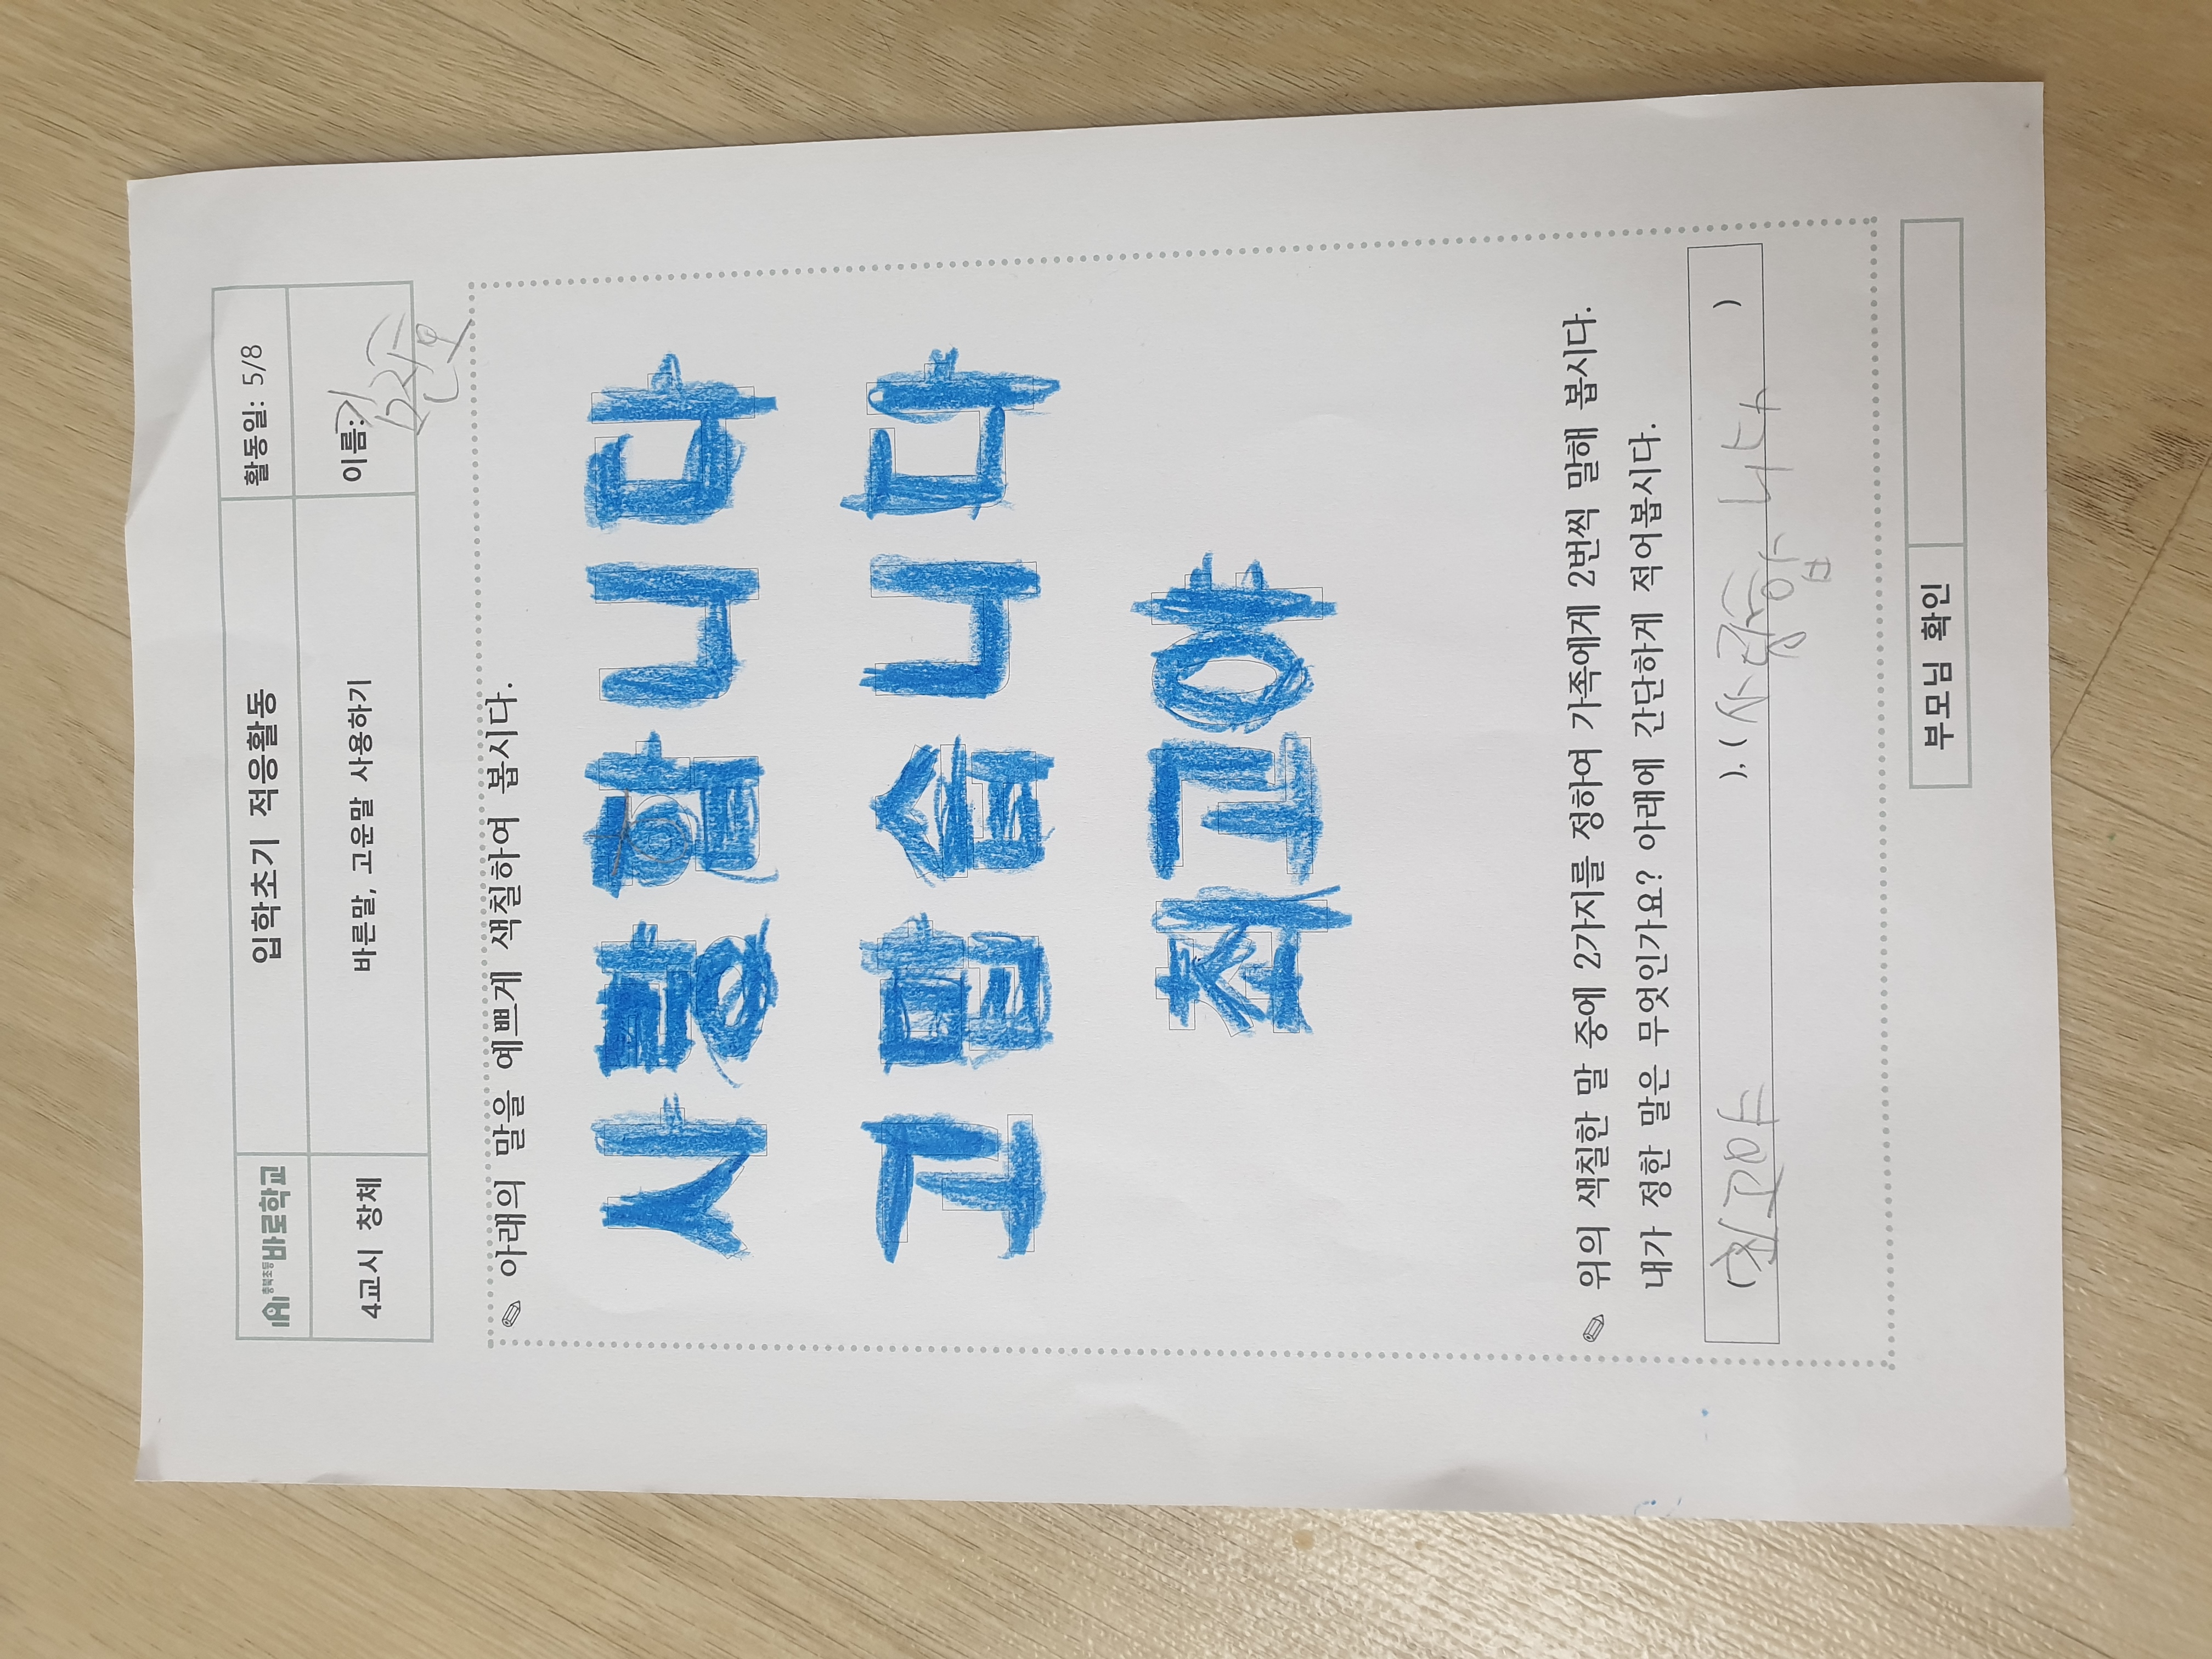 충북초등 바로학교
입학초기 적응활동
활동일: 5/8
4교시 창체
바른말, 고운말 사용하기
이름: 김준호
아래의 말을 예쁘게 색칠하여 봅시다.
사랑합니다
고맙습니다
최고야
위의 색칠한 말 중에 2가지를 정하여 가족에게 2번씩 말해 봅시다.
내가 정한 말은 무엇인가요? 아래에 간단하게 적어봅시다.
(최고야 ), (사랑합니다 )
부모님 확인